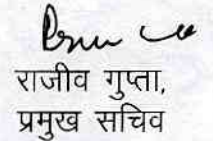 राजीव गुप्ता,
प्रमुख सचिव